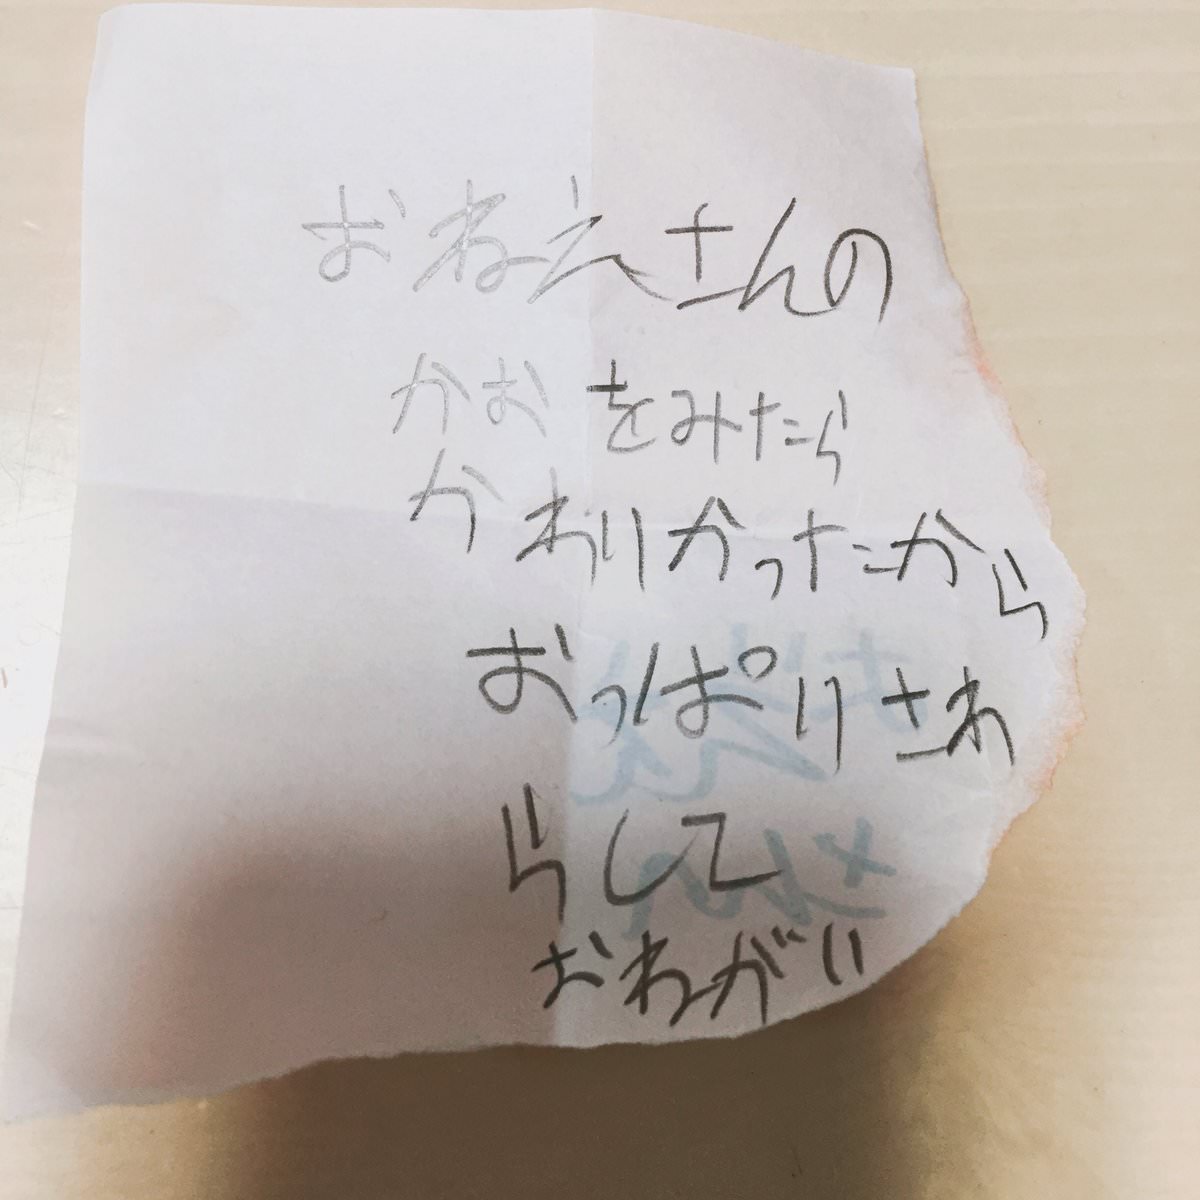 おねえさんの
かおをみたら
かわりかったから
おっぱりさわ
らして
おねがい